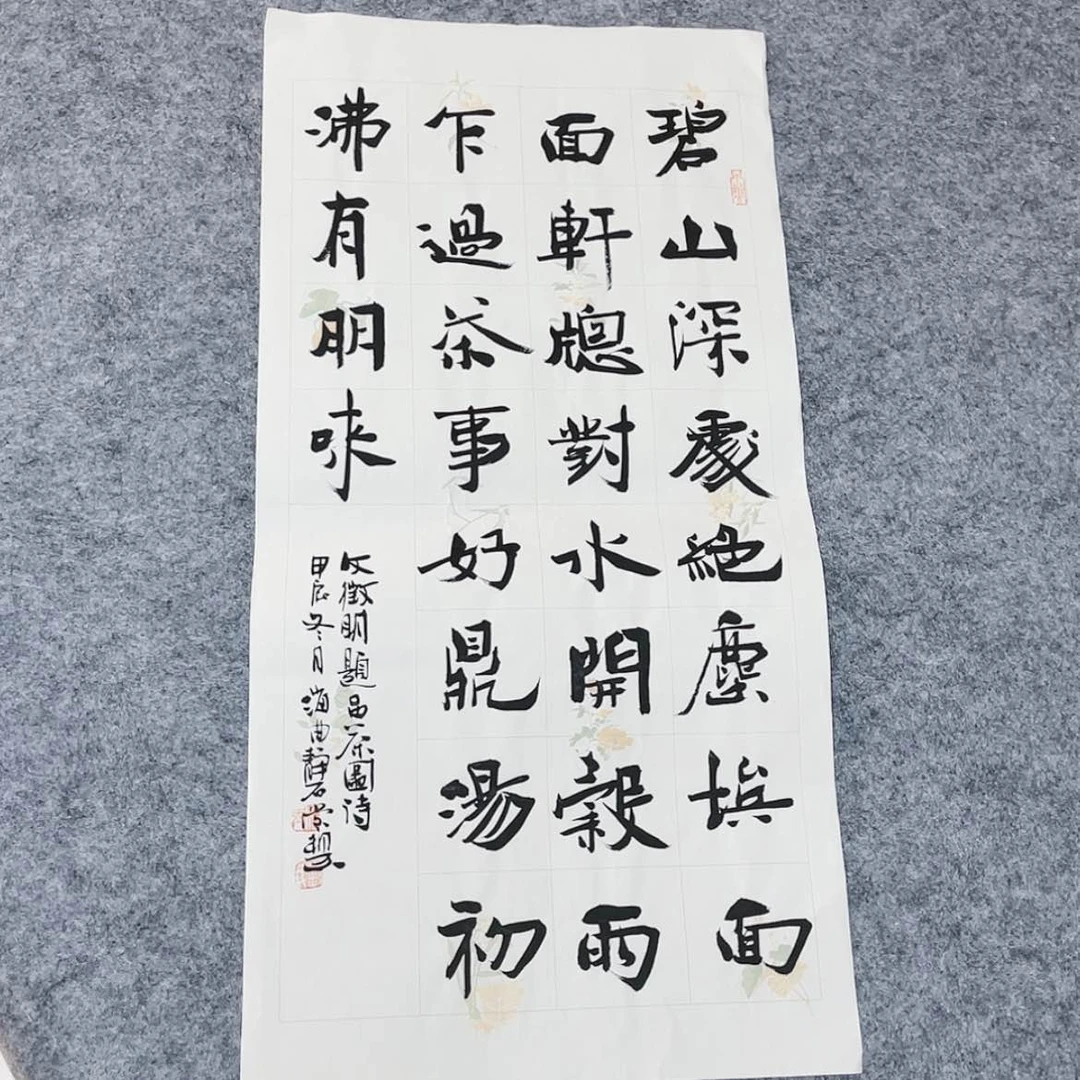 碧山深處絶塵埃面
面軒牕對水開穀雨
乍過茶事好鼎湯初
沸有朋来
文徵明題品茶圖詩
甲辰冬月海曲靜石堂